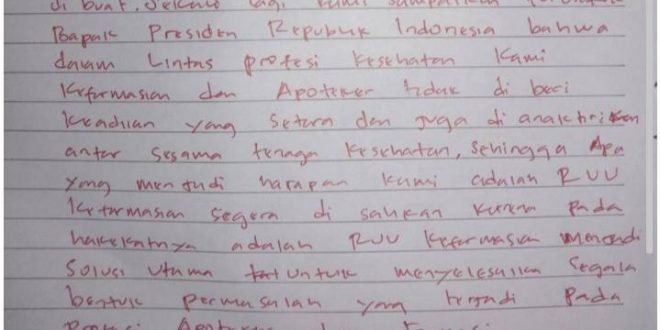 di buat. Sekali lagi kami sampaikan
Bapak Presiden Republik Indonesia bahwa
dalam Lintas profesi Kesehatan Kami
Kefarmasian dan Apoteker tidak di beri
Keadilan yang Setara dan juga di anaktirikan
antar Sesama tenaga Kesehatan, Sehingga Apa
yang menjadi harapan Kami adalah RUU
Kefarmasian Segera di sahkan Karena Pada
hakekatnya adalah RUU Kefarmasian menjadi
Solusi Utama untuk menyelesaikan Segala
bentuk permasalahan yang terjadi Pada